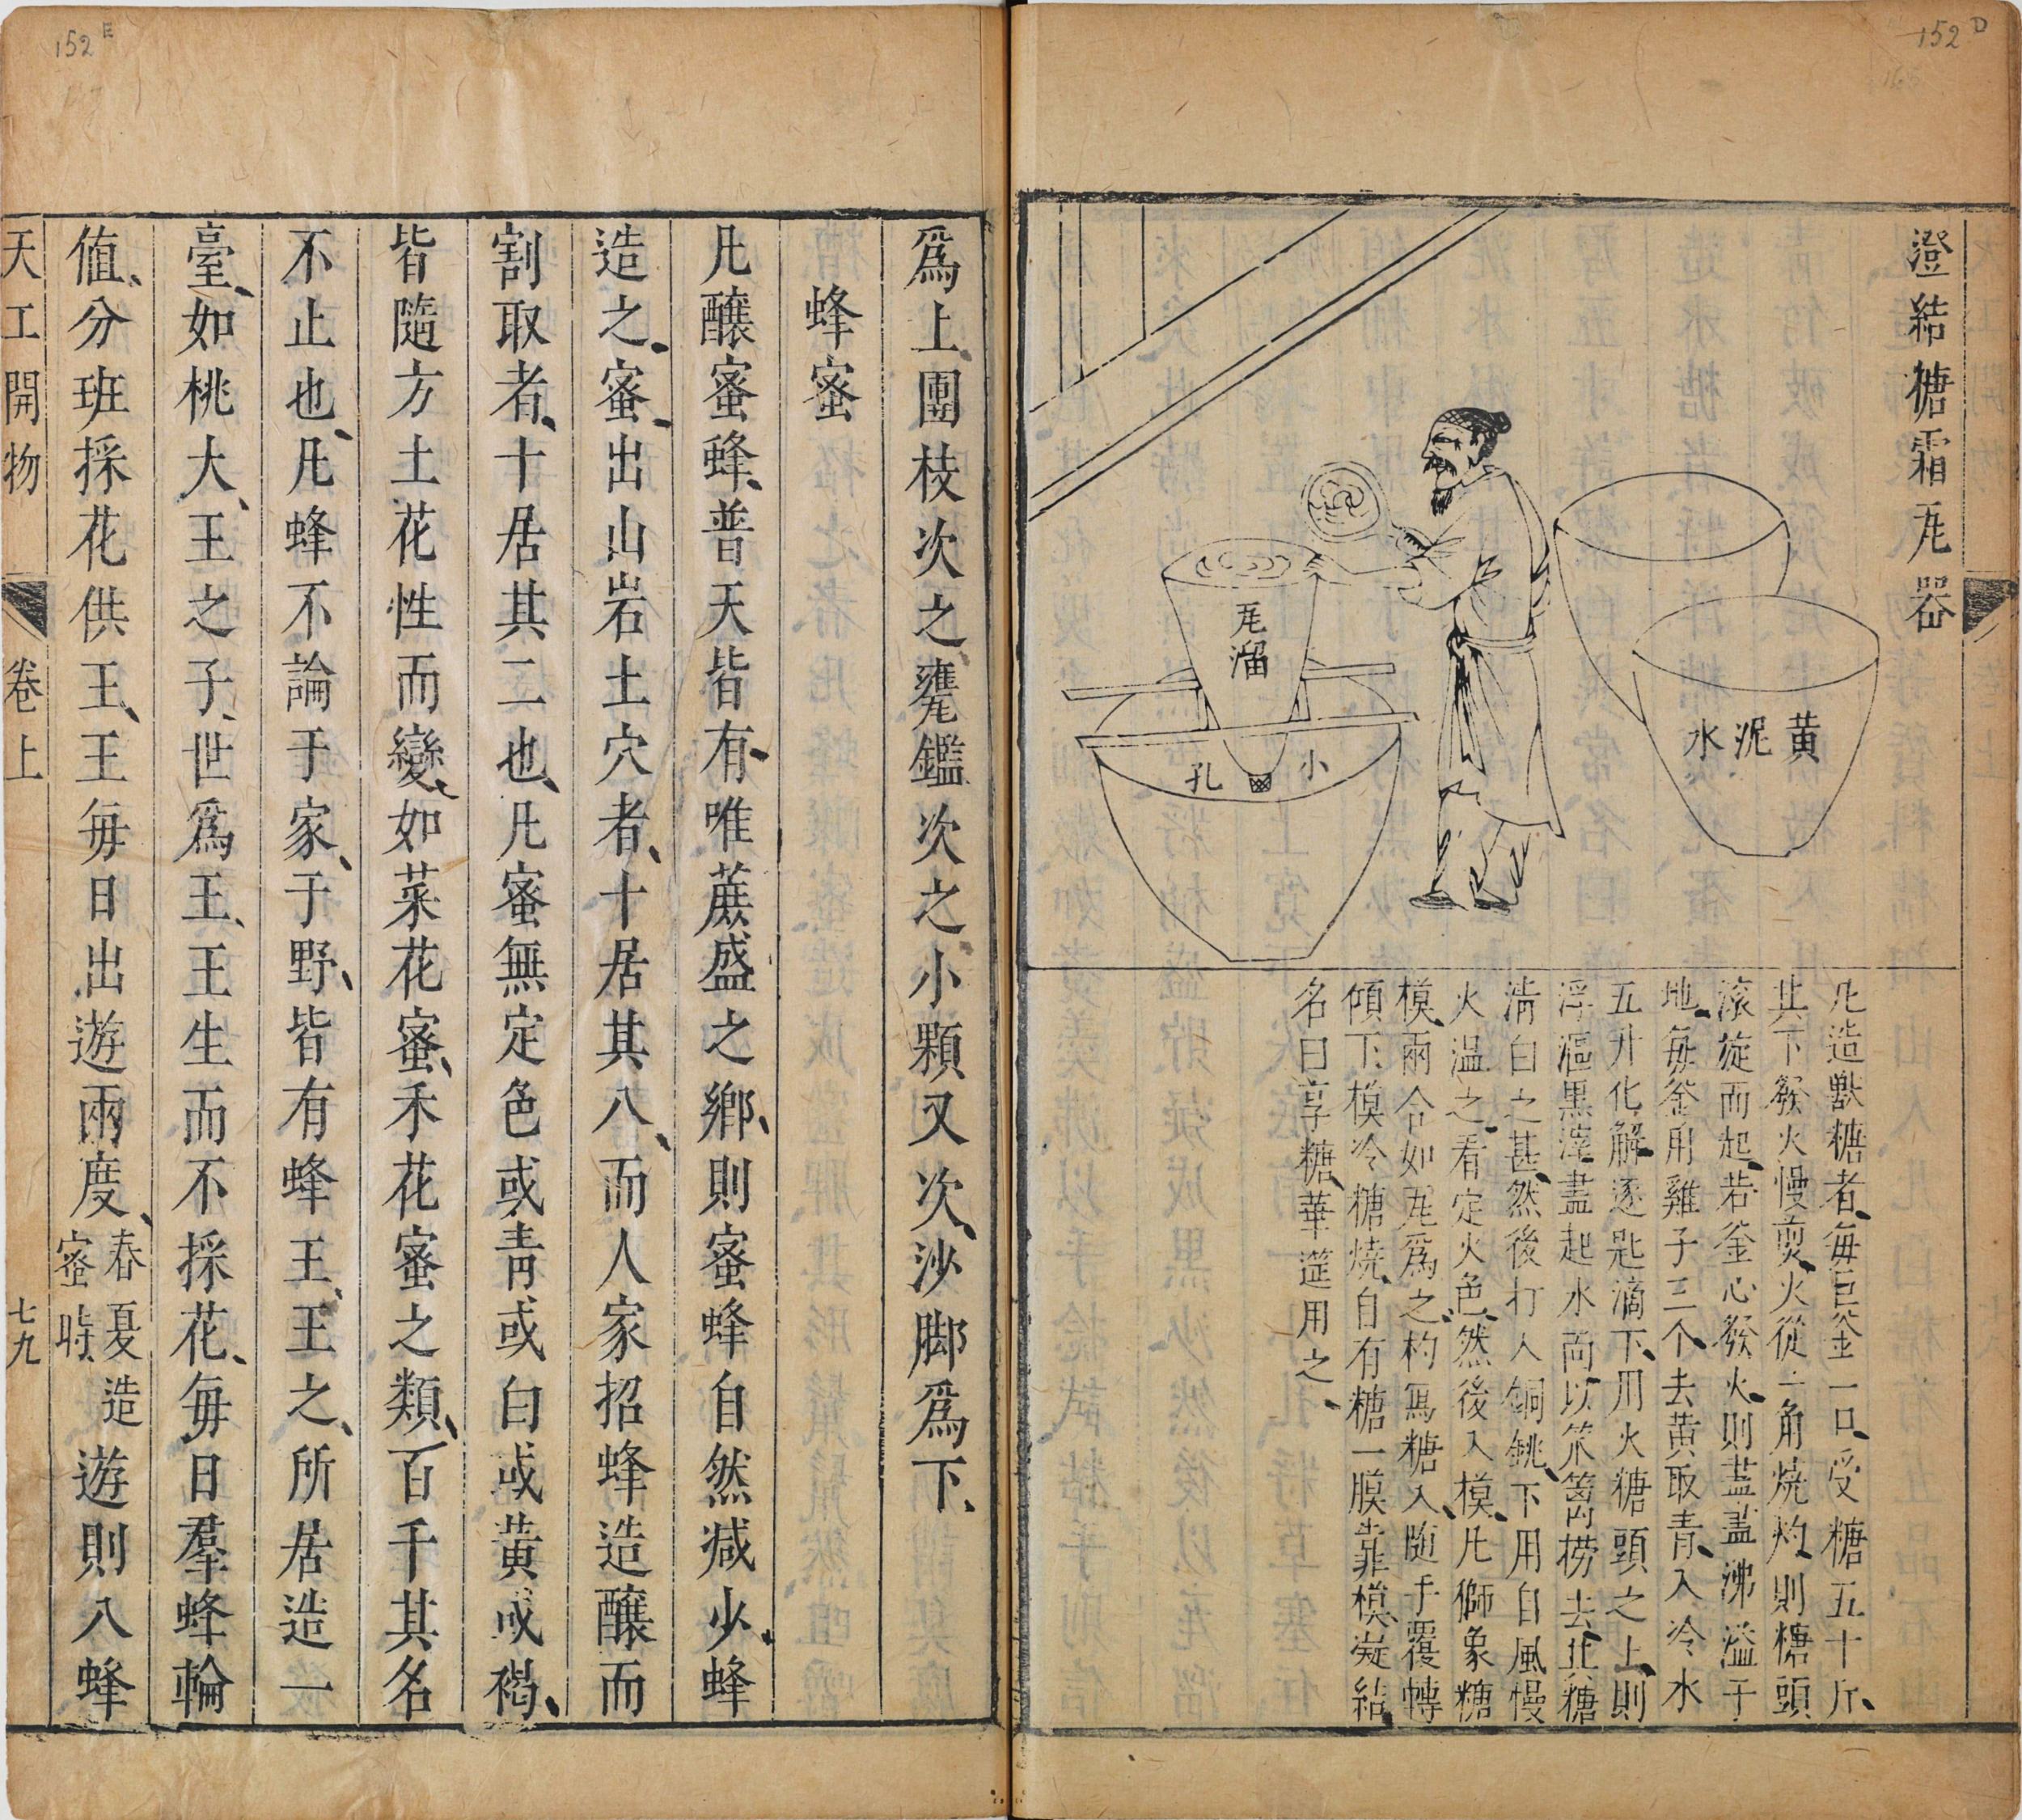 152 D
澄結糖霜瓦器
黃泥水
瓦溜
小孔
凡造獸糖者、每巨釜一口、受糖五十斤、
其下發火慢煎、火從一角燒灼、則糖頭
滾旋而起、若釜心發火、則盡盡沸溢于
地、每釜用雞子三个、去黃取青、入冷水
五升化解、逐匙滴下、用火糖頭之上、則
浮漚黑滓盡起水面、以笊篱撈去、其糖
清白之甚、然後打入銅銚、下用自風慢
火溫之、看定火色、然後入模、凡獅象糖
模、兩合如瓦爲之、杓寫糖入、隨手覆轉
傾下、模冷糖燒、自有糖一膜靠模凝結、
名曰享糖、華筵用之、
152 E
爲上、團枝次之、甕鑑次之、小顆又次、沙脚爲下、
蜂蜜
凡釀蜜蜂、普天皆有、唯蔗盛之鄉、則蜜蜂自然減少、蜂
造之蜜、出山岩土穴者、十居其八、而人家招蜂造釀而
割取者、十居其二也、凡蜜無定色、或青或白、或黃或褐、
皆隨方土花性而變、如菜花蜜、禾花蜜之類、百千其名
不止也、凡蜂不論于家、于野、皆有蜂王、王之所居造一
臺、如桃大、王之子、世爲王、王生而不採花、每日羣蜂輪
値、分班採花供王、王每日出遊兩度、春夏造蜜時、遊則八蜂
天工開物 卷上 七九